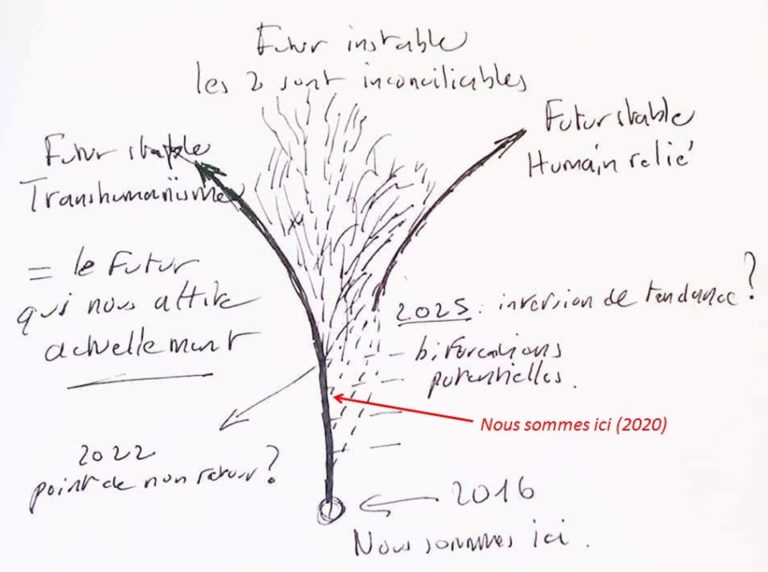 Futur instable
les 2 sont inconciliables
Futur stable
Transhumanisme
= le Futur
qui nous attire
actuellement
Futur stable
Humain relié
2025 : inversion de tendance ?
bifurcations
potentielles.
Nous sommes ici (2020)
2022
point de non retour ?
2016
Nous sommes ici.